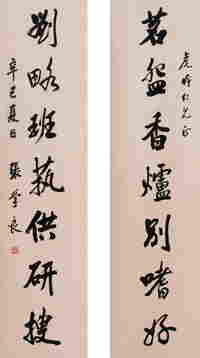 虎仁兄正
茗盌香爐別嗜好
劉略班蓺供研搜
辛巳夏日 張學良